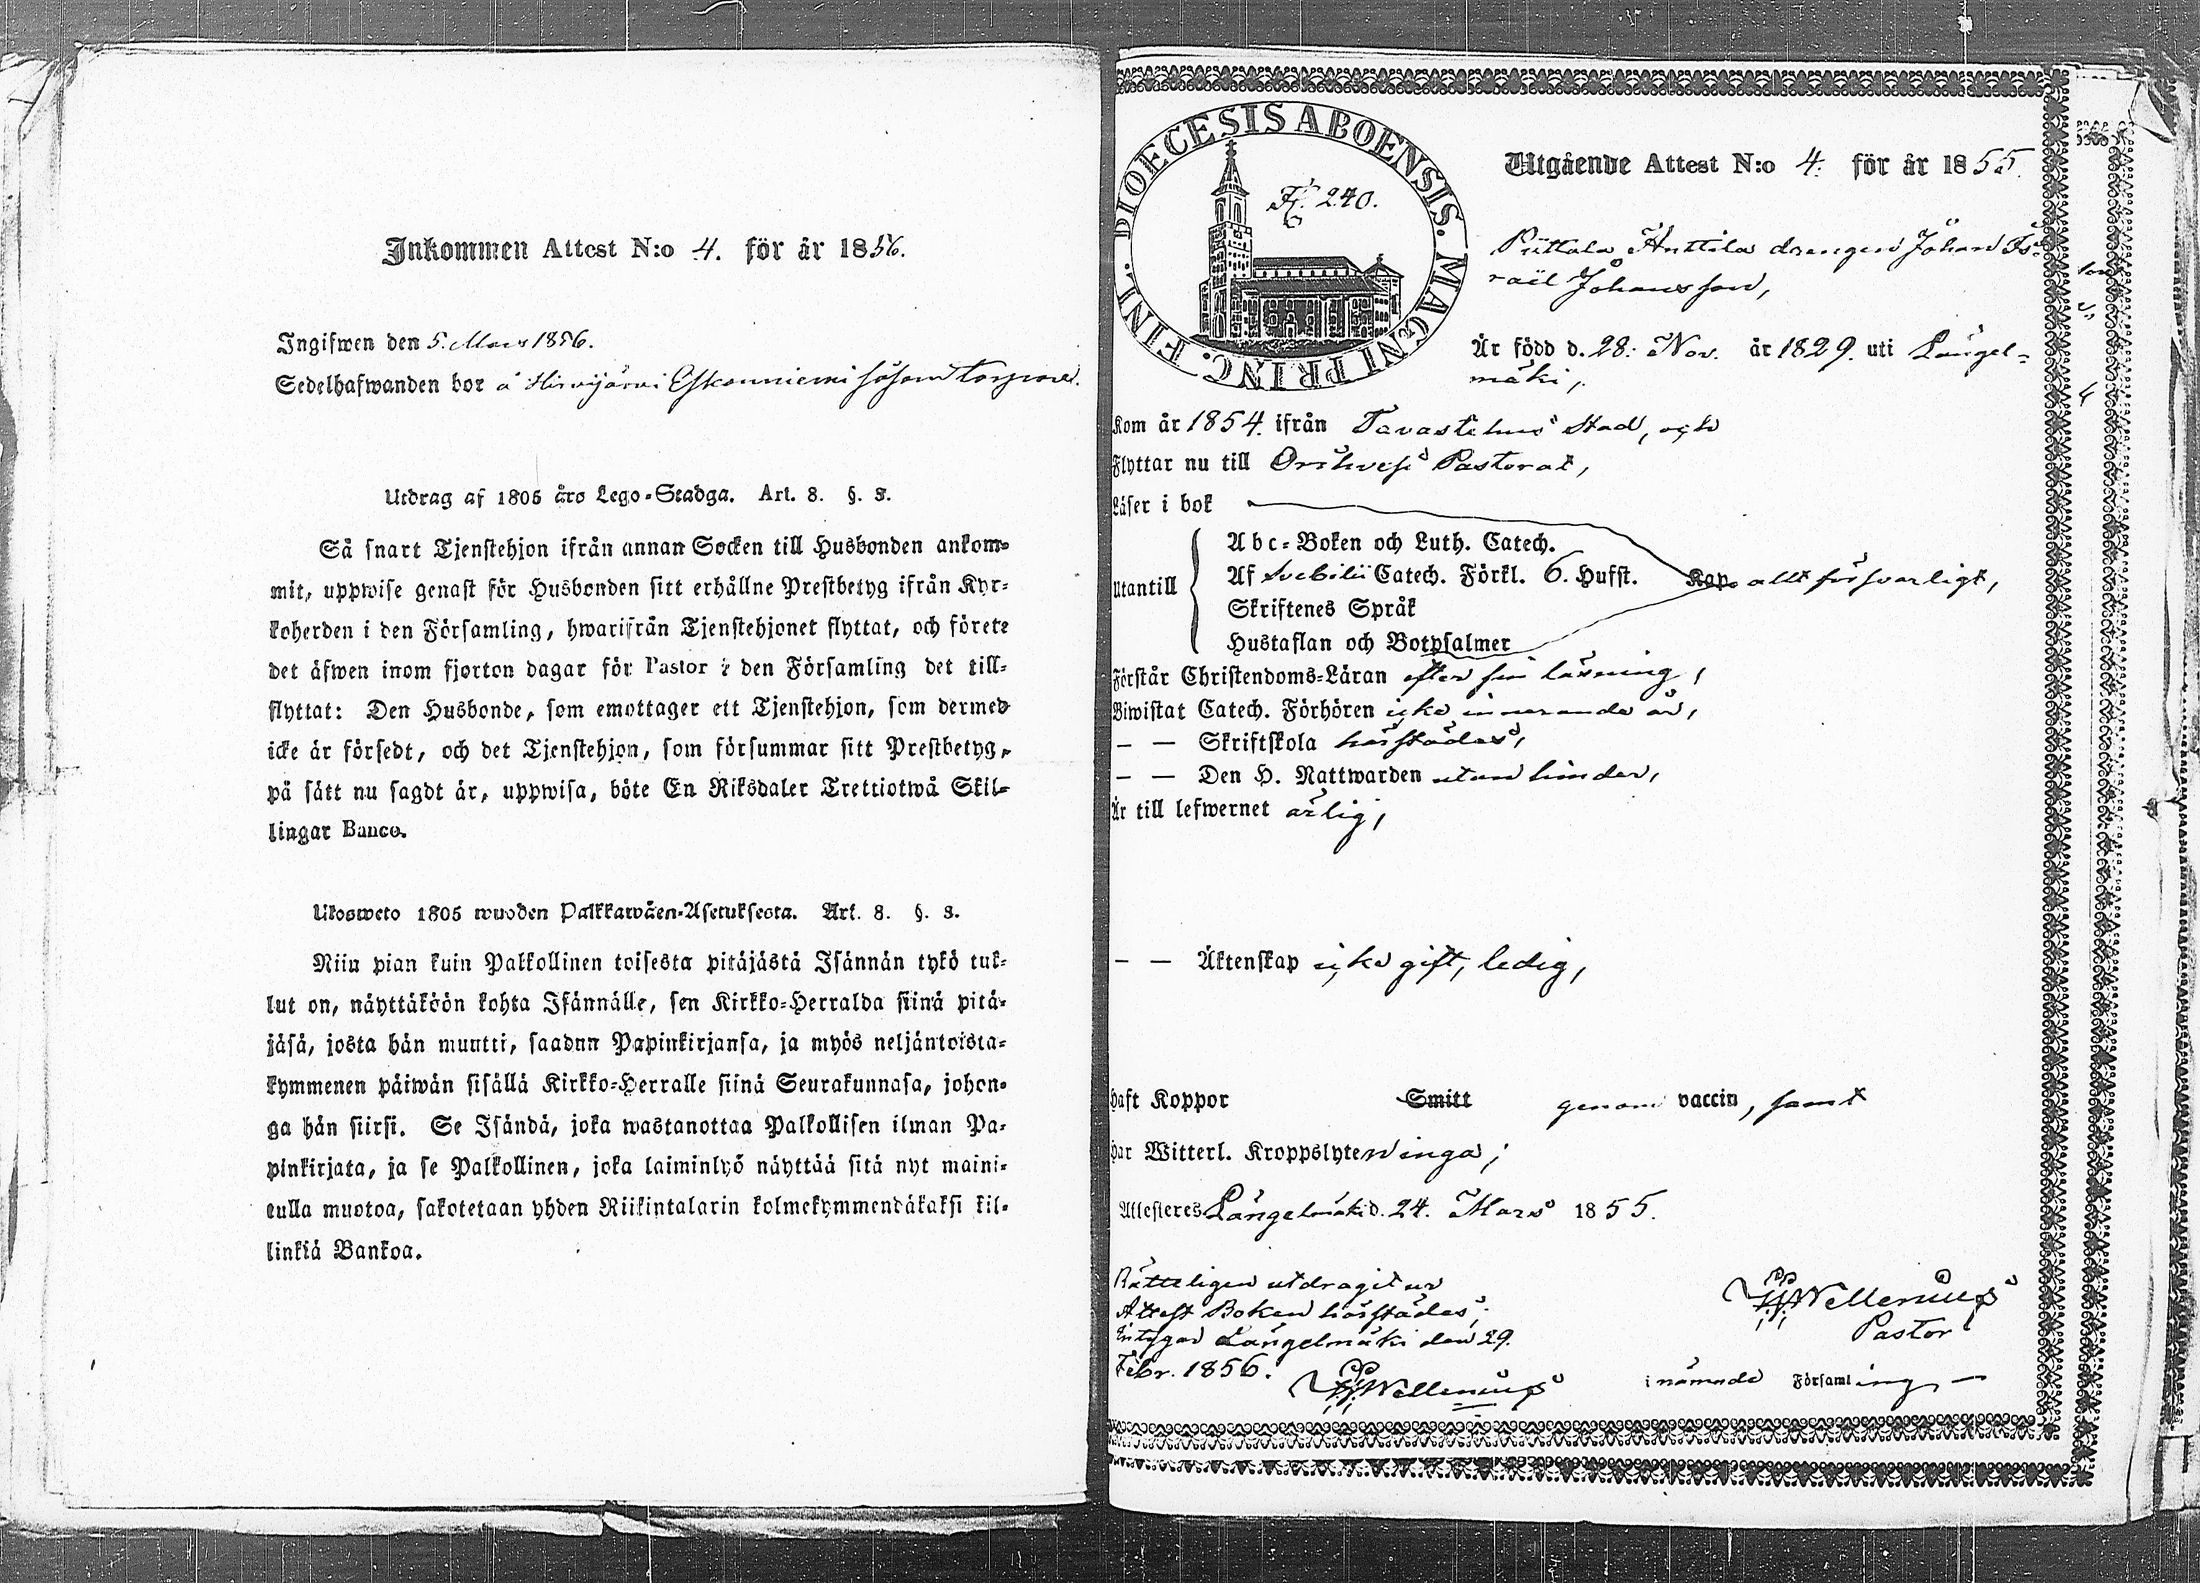 Inkommen Attest N:o 4. för år 1856.
Ingifwen den 5. Mars 1856.
Sedelhafwanden bor å Hirvijärvi Eskonniemi såsom torpare.
Utdrag af 1805 års Lego-Stadga. Art. 8. §. 3.
Så snart Tjenstehjon ifrån annan Socken till Husbonden ankom-
mit, uppwise genast för Husbonden sitt erhållne Prestbetyg ifrån Kyr-
koherden i den Församling, hwarifrån Tjenstehjonet flyttat, och förete
det äfwen inom fjorton dagar för Pastor i den Församling det till-
flyttat: Den Husbonde, som emottager ett Tjenstehjon, som dermed
icke är försedt, och det Tjenstehjon, som försummar sitt Prestbetyg,
på sätt nu sagdt är, uppwisa, böte En Riksdaler Trettiotwå Skil-
lingar Banco.
Ulosweto 1805 wuoden Palkkawäen-Asetuksesta. Art. 8. §. 3.
Niin pian kuin Palkollinen toisesta pitäjästä Isännän tykö tul-
lut on, näyttäköön kohta Isännälle, sen Kirkko-Herralda siinä pitä-
jäsä, josta hän muutti, saadun Papinkirjansa, ja myös neljäntoista-
kymmenen päiwän sisällä Kirkko-Herralle siinä Seurakunnasa, johon-
ga hän siirsi. Se Isändä, joka wastanottaa Palkollisen ilman Pa-
pinkirjata, ja se Palkollinen, joka laiminlyö näyttää sitä nyt maini-
tulla muotoa, sakotetaan yhden Riikintalarin kolmekymmendäkaksi kil-
linkiä Bankoa.
DIOECESIS ABOENSIS. MAGNI PRINC. FINL.
Fr. 240.
Utgående Attest N:o 4. för år 1855.
Piittala Anttila drengen Johan Is-
rail Johansson,
Är född d. 28: Nov. år 1829. uti Längel-
mäki,
Kom år 1854. ifrån Tavastehus Stad, och
Flyttar nu till Orihvesi Pastorat,
Läser i bok
Abc-Boken och Luth. Catech.
Utantill Af Svebilii Catech. Förkl. 6. Hufst. Kap. allt försvarligt,
Skriftenes Språk
Hustaflan och Botpsalmer
Förstår Christendoms-Läran efter sin läsning,
Biwistat Catech. Förhören icke innevarande år,
— — Skriftskola härstädes,
— — Den H. Nattwarden utan hinder,
Är till lefwernet ärlig,
— — Äktenskap icke gift, ledig,
Haft Koppor Smitt genom vaccin, samt
Har Witterl. Kroppslyten inga;
Attesteres Längelmäki d. 24. Mars 1855.
Rätteligen utdragit ur
Attest Boken härstädes,
intygar Längelmäki den 29.
Febr. 1856. Wellenius
Wellenius
Pastor
i nämnde Församling, —